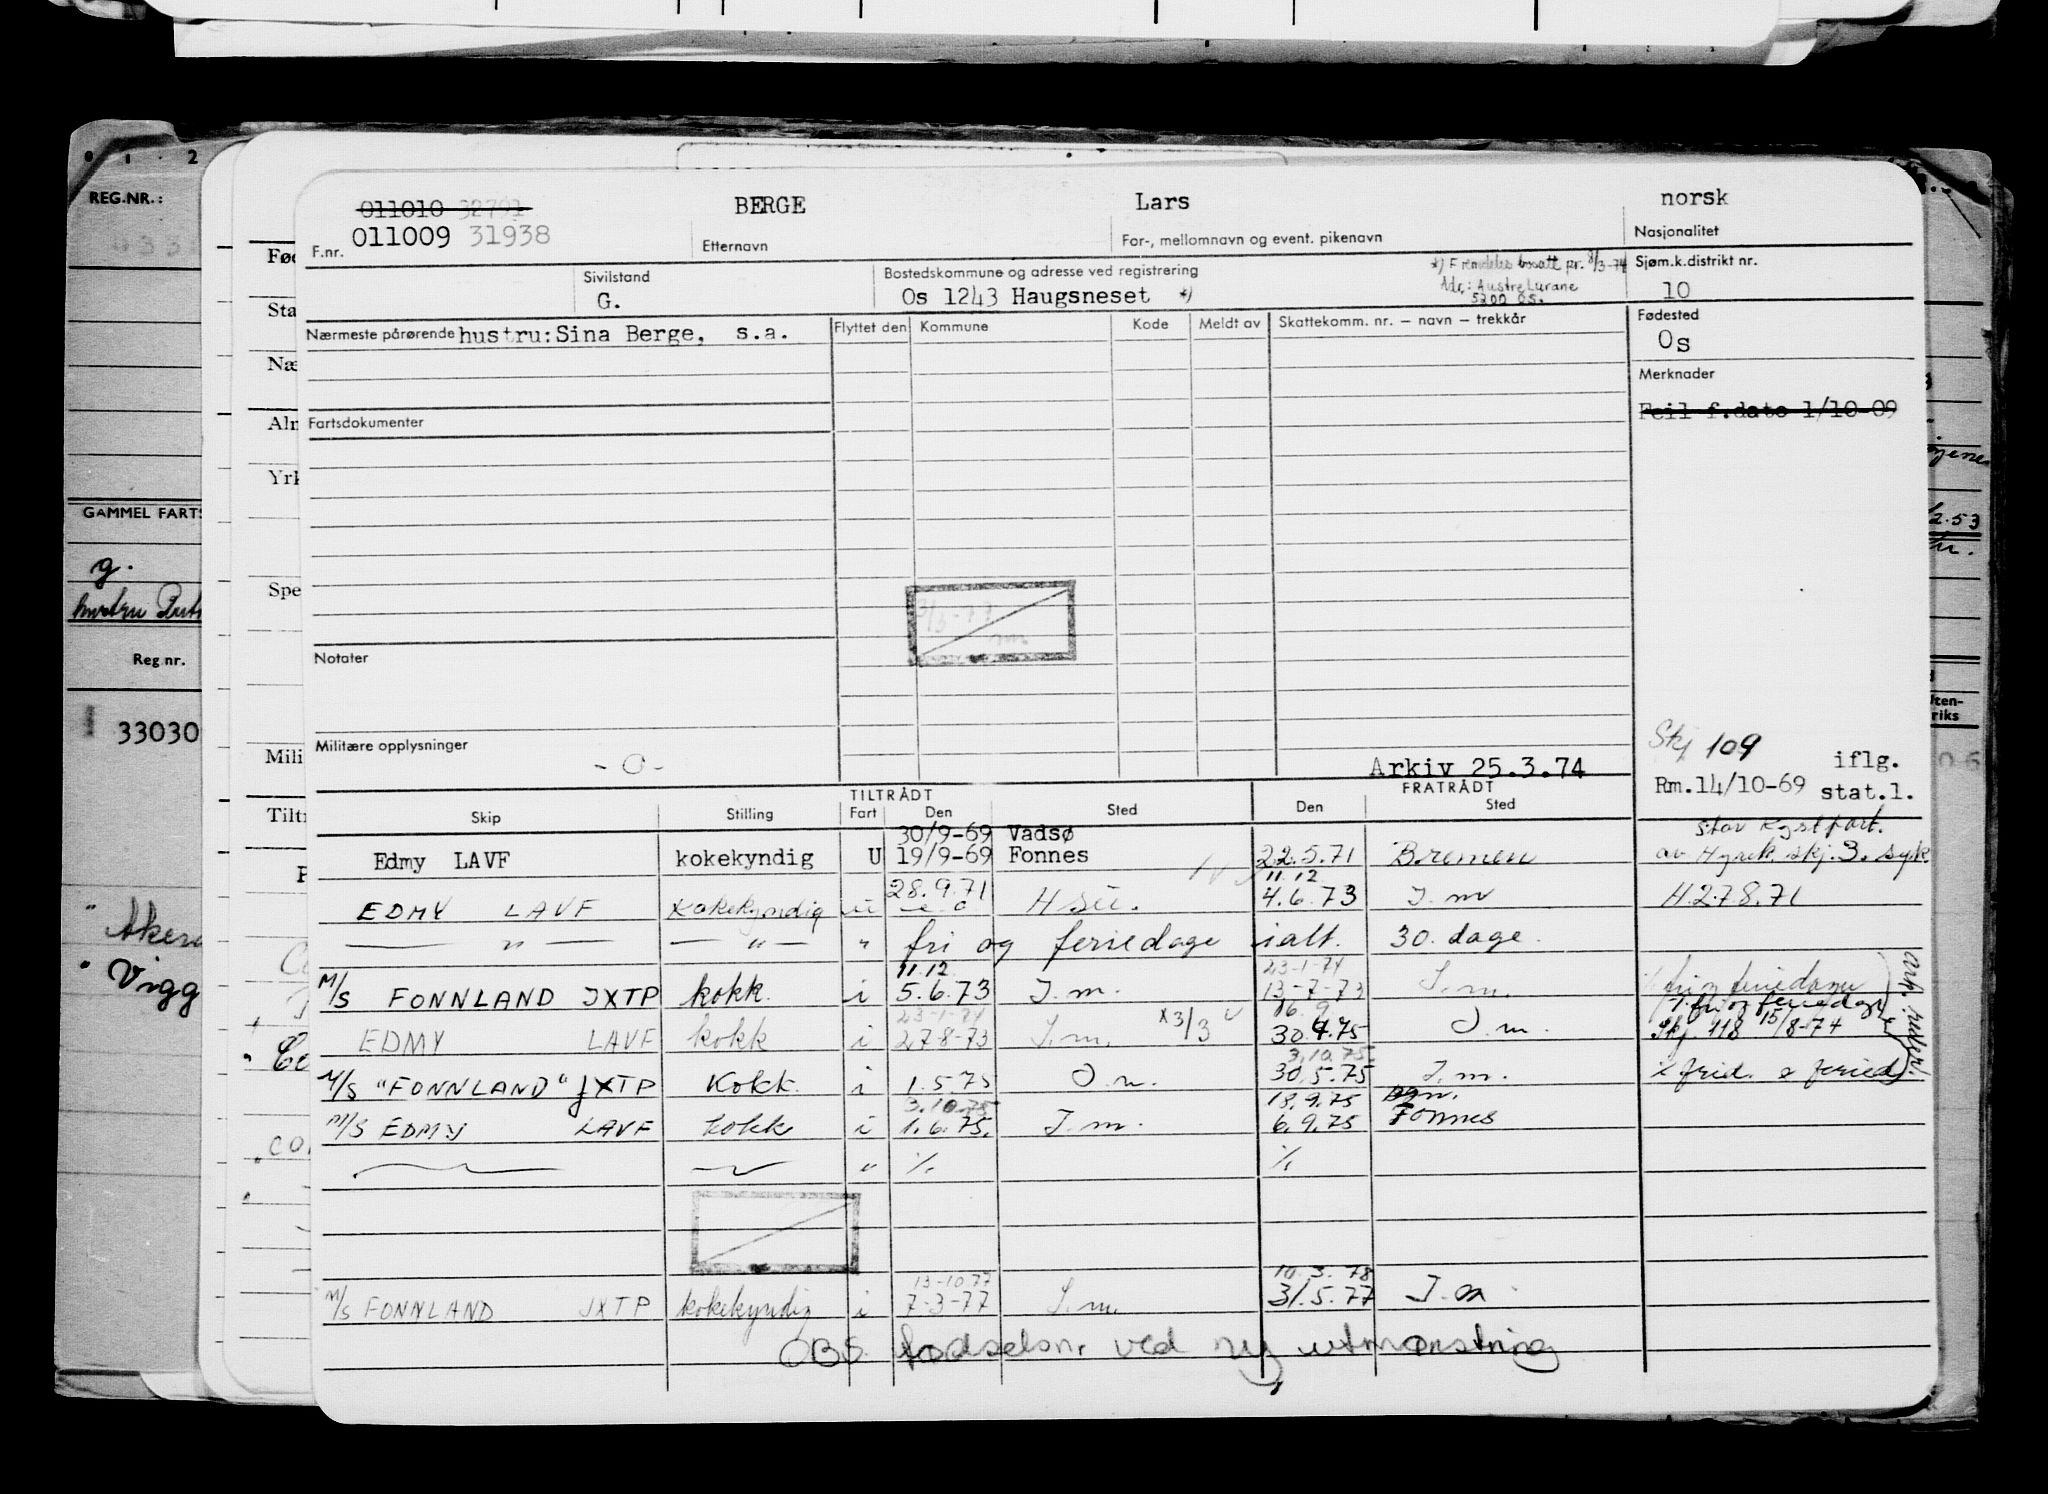 REG.NR.:
GAMMEL FARTS
g.
Reg.nr.
33030
Akers
Vigg
011010 32791
011009 31938
F.nr.
BERGE
Etternavn
Lars
For-, mellomnavn og event. pikenavn
norsk
Nasjonalitet
Sivilstand
G.
Bostedskommune og adresse ved registrering
Os 1243 Haugsneset *)
*) Fremdeles bosatt pr. 8/3-74
Adr.: Austre Lurane
5200 Os.
Sjøm.k.distrikt nr.
10
Nærmeste pårørende hustru: Sina Berge, s.a.
Flyttet den
Kommune
Kode
Meldt av
Skattekomm. nr. – navn – trekkår
Fødested
Os
Merknader
Feil f.dato 1/10-09
Fartsdokumenter
Notater
Militære opplysninger
-0-
Arkiv 25.3.74
Skj 109 iflg.
Rm.14/10-69 stat.l.
TILTRÅDT FRATRÅDT
Skip Stilling Fart Den Sted Den Sted
30/9-69 Vadsø
Edmy LAVF kokekyndig U 19/9-69 Fonnes 22.5.71 Bremen
stor kystfart.
av Hyrek. skj. 3. syk
28.9.71 11.12
EDMY LAVF Kokekyndig u Hsü. 4.6.73 I.m H 27.8.71
— " — — " — " fri og feriedage ialt. 30. dage.
11.12 23-1-74
M/S FONNLAND JXTP kokk. i 5.6.73 I.m. 13-7-73 I.m.
23-1-74 16.9
EDMY LAVF kokk i 27-8-73 I.m. x3/3 30.4.75 I.m.
% fri og feriedage
Skj. 118 15/8-74
3.10.75.
M/S "FONNLAND" JXTP Kokk. i 1.5.75 I.m. 30.5.75 I.m. % frid. & feried
3.10.75 18.9.75
M/S EDMY LAVF kokk i 1.6.75. I.m. 6.9.75 Fonnes
" % %
13-10.77 10.3.78
M/S FONNLAND JXTP kokekyndig i 7-3-77 I.m. 31.5.77 I.m
OBS fødselsnr ved ny utmønstring